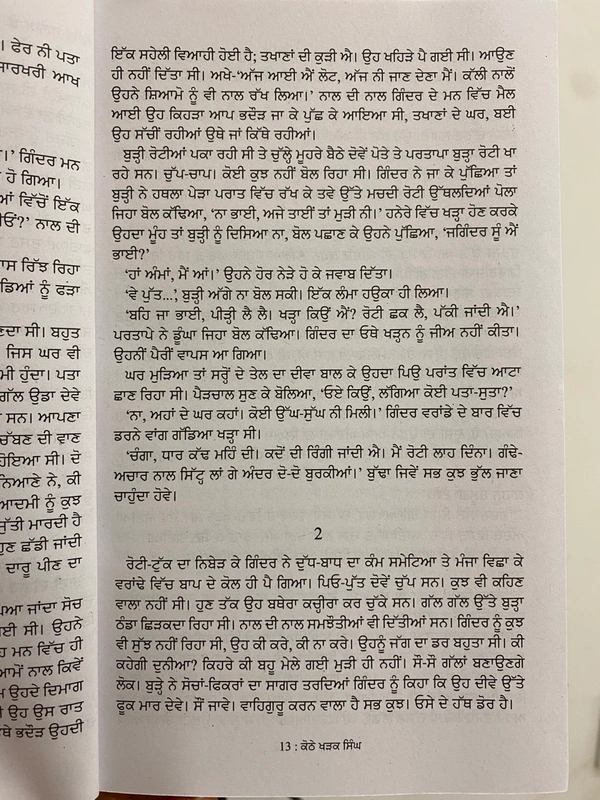 । ਫੇਰ ਨੀ ਪਤਾ
ਜਾਰਖਰੀ ਆਖ
।' ਗਿੰਦਰ ਮਨ
ਹੋ ਗਿਆ।
ਆਂ ਵਿੱਚੋਂ ਇੱਕ
ਨਾਲ ਦੀ
ਰਿੱਝ ਰਿਹਾ
ਨੂੰ ਫੜਾ
ਸੀ। ਬਹੁਤ
ਜਿਸ ਘਰ ਵੀ
ਹੁੰਦਾ। ਪਤਾ
ਗੱਲ ਉਡਾ ਦੇਵੇ
ਸਨ। ਆਪਣਾ
ਚੱਬਣ ਦੀ ਵਾਣ
ਹੋਇਆ ਸੀ। ਦੋ
ਨਿਆਣੇ ਨੇ, ਕੀ
ਆਦਮੀ ਨੂੰ ਕੁਝ
ਜੁੱਤੀ ਮਾਰਦੀ ਹੈ
ਹੁਣ ਛੱਡੀ ਜਾਂਦੀ
ਦਾਰੂ ਪੀਣ ਦਾ
ਜਾਂਦਾ ਸੋਚ
ਸੀ। ਉਹਨੇ
ਮਨ ਵਿੱਚ ਹੀ
ਨਾਲ ਕਿਵੇਂ
ਉਹਦੇ ਦਿਮਾਗ
ਉਹ ਉਸ ਰਾਤ
ਭਦੌੜ ਉਹਦੀ
ਇੱਕ ਸਹੇਲੀ ਵਿਆਹੀ ਹੋਈ ਹੈ; ਤਖਾਣਾਂ ਦੀ ਕੁੜੀ ਐ। ਉਹ ਖਹਿੜੇ ਪੈ ਗਈ ਸੀ। ਆਉਣ
ਹੀ ਨਹੀਂ ਦਿੱਤਾ ਸੀ। ਅਖੇ-'ਅੱਜ ਆਈ ਐਂ ਲੋਟ, ਅੱਜ ਨੀ ਜਾਣ ਦੇਣਾ ਮੈਂ। ਕੱਲੀ ਨਾਲੋਂ
ਉਹਨੇ ਸ਼ਿਆਮੋ ਨੂੰ ਵੀ ਨਾਲ ਰੱਖ ਲਿਆ।' ਨਾਲ ਦੀ ਨਾਲ ਗਿੰਦਰ ਦੇ ਮਨ ਵਿੱਚ ਮੈਲ
ਆਈ ਉਹ ਕਿਹੜਾ ਆਪ ਭਦੌੜ ਜਾ ਕੇ ਪੁੱਛ ਕੇ ਆਇਆ ਸੀ, ਤਖਾਣਾਂ ਦੇ ਘਰ, ਬਈ
ਉਹ ਸੱਚੀਂ ਰਹੀਆਂ ਉਥੇ ਜਾਂ ਕਿੱਥੇ ਰਹੀਆਂ।
ਬੁੜ੍ਹੀ ਰੋਟੀਆਂ ਪਕਾ ਰਹੀ ਸੀ ਤੇ ਚੁੱਲ੍ਹੇ ਮੂਹਰੇ ਬੈਠੇ ਦੋਵੇਂ ਪੋਤੇ ਤੇ ਪਰਤਾਪਾ ਬੁੜ੍ਹਾ ਰੋਟੀ ਖਾ
ਰਹੇ ਸਨ। ਚੁੱਪ-ਚਾਪ। ਕੋਈ ਕੁਝ ਨਹੀਂ ਬੋਲ ਰਿਹਾ ਸੀ। ਗਿੰਦਰ ਨੇ ਜਾ ਕੇ ਪੁੱਛਿਆ ਤਾਂ
ਬੁੜ੍ਹੀ ਨੇ ਹਥਲਾ ਪੇੜਾ ਪਰਾਤ ਵਿੱਚ ਰੱਖ ਕੇ ਤਵੇ ਉੱਤੇ ਮਚਦੀ ਰੋਟੀ ਉੱਥਲਦਿਆਂ ਪੋਲਾ
ਜਿਹਾ ਬੋਲ ਕੱਢਿਆ, 'ਨਾ ਭਾਈ, ਅਜੇ ਤਾਈਂ ਤਾਂ ਮੁੜੀ ਨੀ।' ਹਨੇਰੇ ਵਿੱਚ ਖੜ੍ਹਾ ਹੋਣ ਕਰਕੇ
ਉਹਦਾ ਮੂੰਹ ਤਾਂ ਬੁੜ੍ਹੀ ਨੂੰ ਦਿਸਿਆ ਨਾ, ਬੋਲ ਪਛਾਣ ਕੇ ਉਹਨੇ ਪੁੱਛਿਆ, 'ਜਗਿੰਦਰ ਸੂੰ ਐਂ
ਭਾਈ?'
'ਹਾਂ ਅੰਮਾਂ, ਮੈਂ ਆਂ।' ਉਹਨੇ ਹੋਰ ਨੇੜੇ ਹੋ ਕੇ ਜਵਾਬ ਦਿੱਤਾ।
'ਵੇ ਪੁੱਤ...', ਬੁੜ੍ਹੀ ਅੱਗੇ ਨਾ ਬੋਲ ਸਕੀ। ਇੱਕ ਲੰਮਾ ਹਉਕਾ ਹੀ ਲਿਆ।
'ਬਹਿ ਜਾ ਭਾਈ, ਪੀੜ੍ਹੀ ਲੈ ਲੈ। ਖੜਾ ਕਿਉਂ ਐਂ? ਰੋਟੀ ਛਕ ਲੈ, ਪੱਕੀ ਜਾਂਦੀ ਐ।'
ਪਰਤਾਪੇ ਨੇ ਡੂੰਘਾ ਜਿਹਾ ਬੋਲ ਕੱਢਿਆ। ਗਿੰਦਰ ਦਾ ਓਥੇ ਖੜ੍ਹਨ ਨੂੰ ਜੀਅ ਨਹੀਂ ਕੀਤਾ।
ਉਹਨੀਂ ਪੈਰੀਂ ਵਾਪਸ ਆ ਗਿਆ।
ਘਰ ਮੁੜਿਆ ਤਾਂ ਸਰ੍ਹੋਂ ਦੇ ਤੇਲ ਦਾ ਦੀਵਾ ਬਾਲ ਕੇ ਉਹਦਾ ਪਿਉ ਪਰਾਂਤ ਵਿੱਚ ਆਟਾ
ਛਾਣ ਰਿਹਾ ਸੀ। ਪੈੜਚਾਲ ਸੁਣ ਕੇ ਬੋਲਿਆ, 'ਓਏ ਕਿਉਂ, ਲੱਗਿਆ ਕੋਈ ਪਤਾ-ਸੁਤਾ?'
'ਨਾ, ਅਹਾਂ ਦੇ ਘਰ ਕਹਾਂ। ਕੋਈ ਉੱਘ-ਸੁੱਘ ਨੀ ਮਿਲੀ।' ਗਿੰਦਰ ਵਰਾਂਡੇ ਦੇ ਬਾਰ ਵਿੱਚ
ਡਰਨੇ ਵਾਂਗ ਗੱਡਿਆ ਖੜ੍ਹਾ ਸੀ।
'ਚੰਗਾ, ਧਾਰ ਕੱਢ ਮਹਿੰ ਦੀ। ਕਦੋਂ ਦੀ ਰਿੰਗੀ ਜਾਂਦੀ ਐ। ਮੈਂ ਰੋਟੀ ਲਾਹ ਦਿੰਨਾ। ਗੰਢੇ-
ਅਚਾਰ ਨਾਲ ਸਿੱਟ੍ਹ ਲਾਂ ਗੇ ਅੰਦਰ ਦੋ-ਦੋ ਬੁਰਕੀਆਂ।' ਬੁੱਢਾ ਜਿਵੇਂ ਸਭ ਕੁਝ ਭੁੱਲ ਜਾਣਾ
ਚਾਹੁੰਦਾ ਹੋਵੇ।
2
ਰੋਟੀ-ਟੁੱਕ ਦਾ ਨਿਬੇੜ ਕੇ ਗਿੰਦਰ ਨੇ ਦੁੱਧ-ਬਾਧ ਦਾ ਕੰਮ ਸਮੇਟਿਆ ਤੇ ਮੰਜਾ ਵਿਛਾ ਕੇ
ਵਰਾਂਢੇ ਵਿੱਚ ਬਾਪ ਦੇ ਕੋਲ ਹੀ ਪੈ ਗਿਆ। ਪਿਓ-ਪੁੱਤ ਦੋਵੇਂ ਚੁੱਪ ਸਨ। ਕੁਝ ਵੀ ਕਹਿਣ
ਵਾਲਾ ਨਹੀਂ ਸੀ। ਹੁਣ ਤੱਕ ਉਹ ਬਥੇਰਾ ਕਚ੍ਹੀਰਾ ਕਰ ਚੁੱਕੇ ਸਨ। ਗੱਲ ਗੱਲ ਉੱਤੇ ਬੁੜ੍ਹਾ
ਠੰਡਾ ਛਿੜਕਦਾ ਰਿਹਾ ਸੀ। ਨਾਲ ਦੀ ਨਾਲ ਸਮਝੌਤੀਆਂ ਵੀ ਦਿੱਤੀਆਂ ਸਨ। ਗਿੰਦਰ ਨੂੰ ਕੁਝ
ਵੀ ਸੁੱਝ ਨਹੀਂ ਰਿਹਾ ਸੀ, ਉਹ ਕੀ ਕਰੇ, ਕੀ ਨਾ ਕਰੇ। ਉਹਨੂੰ ਜੱਗ ਦਾ ਡਰ ਬਹੁਤਾ ਸੀ। ਕੀ
ਕਹੇਗੀ ਦੁਨੀਆ? ਕਿਹਰੇ ਕੀ ਬਹੂ ਮੇਲੇ ਗਈ ਮੁੜੀ ਹੀ ਨਹੀਂ। ਸੌ-ਸੌ ਗੱਲਾਂ ਬਣਾਉਣਗੇ
ਲੋਕ। ਬੁੜ੍ਹੇ ਨੇ ਸੋਚਾਂ-ਫਿਕਰਾਂ ਦਾ ਸਾਗਰ ਤਰਦਿਆਂ ਗਿੰਦਰ ਨੂੰ ਕਿਹਾ ਕਿ ਉਹ ਦੀਵੇ ਉੱਤੇ
ਫੂਕ ਮਾਰ ਦੇਵੇ। ਸੌਂ ਜਾਵੇ। ਵਾਹਿਗੁਰੂ ਕਰਨ ਵਾਲਾ ਹੈ ਸਭ ਕੁਝ। ਓਸੇ ਦੇ ਹੱਥ ਡੋਰ ਹੈ।
13 : ਕੋਠੇ ਖੜਕ ਸਿੰਘ